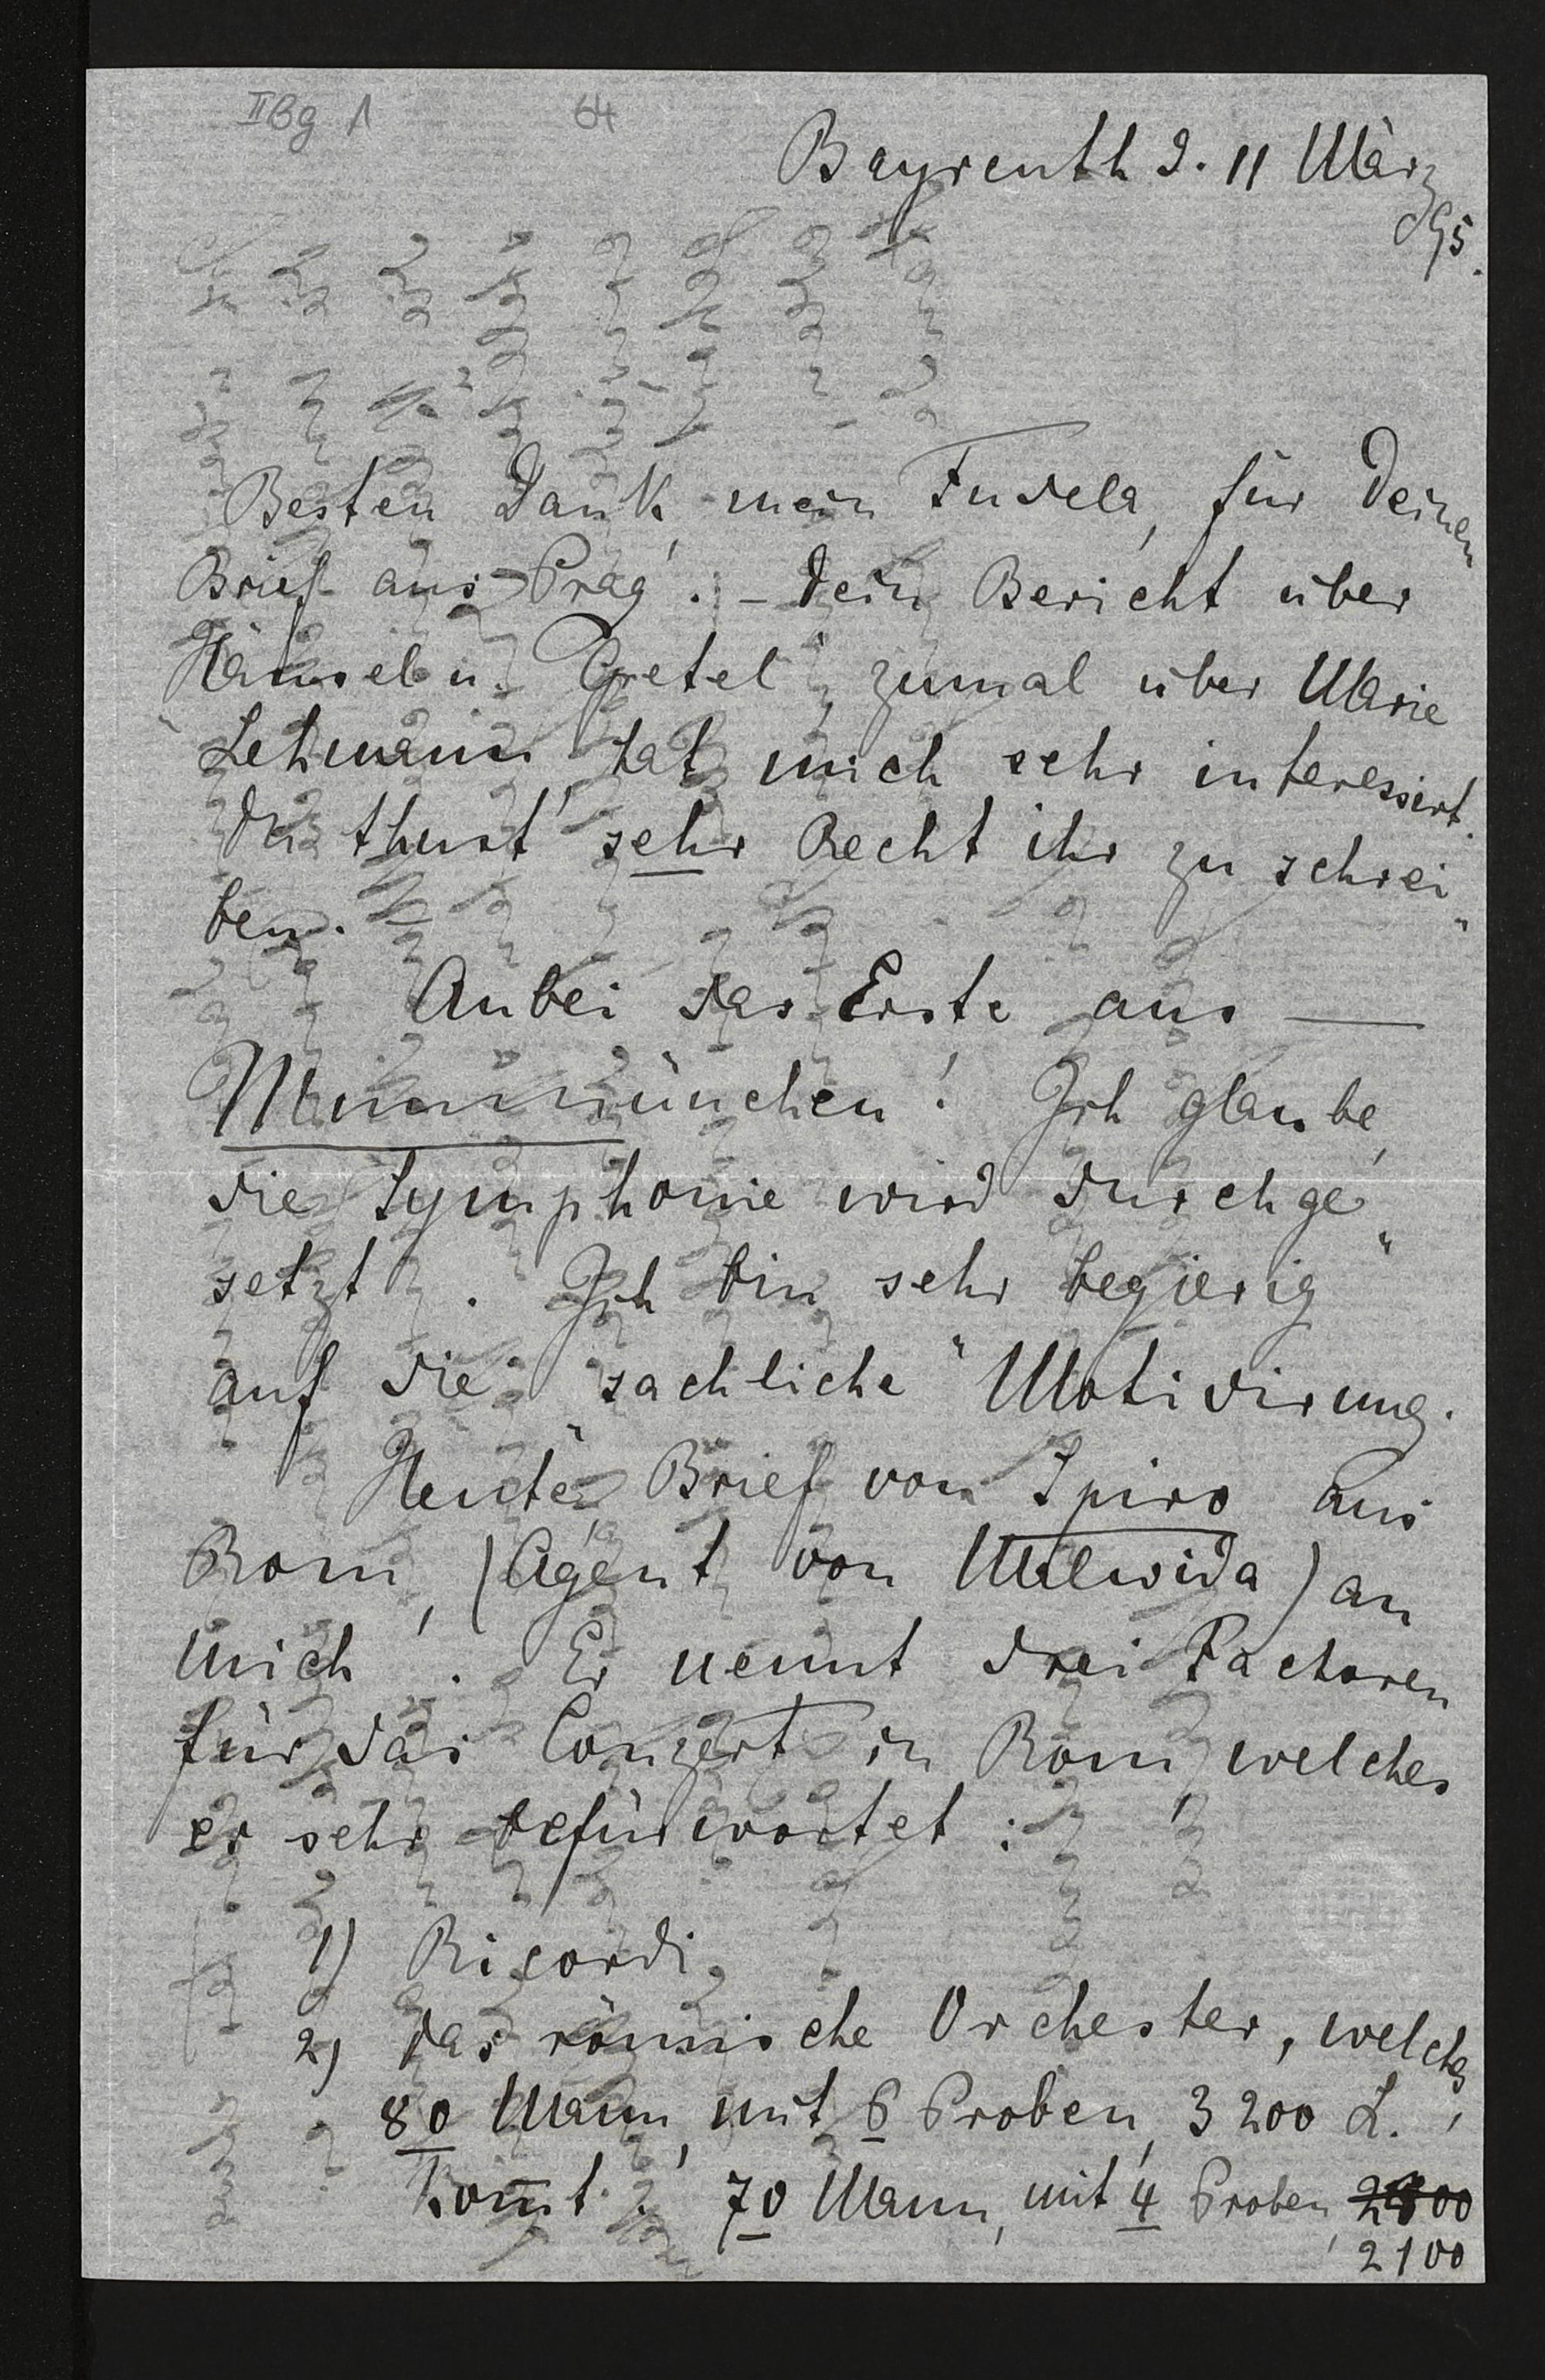 II Bg 1 64
Bayreuth d. 11 März
95.
Besten Dank, mein Fudela, für Deinen
Brief aus Prag. – Dein Bericht über
„Hänsel u. Gretel", zumal über Marie
Lehmann, hat mich sehr interessirt.
Du thust sehr Recht ihr zu schrei„
ben.
Anbei das Erste aus —
Mummünchen! Ich glaube,
die Symphonie wird durchge„
setzt. Ich bin sehr begierig
auf die „sachliche" Motivirung.
Heute Brief von Spiro aus
Rom, (Agent von Malwida) an
mich. Er nennt drei Factoren
für das Conzert in Rom, welches
er sehr befürwortet:
1) Ricordi
2) das römische Orchester, welches
80 Mann, mit 6 Proben, 3200 L.,
kom̅t. 70 Mann, mit 4 Proben,
2100